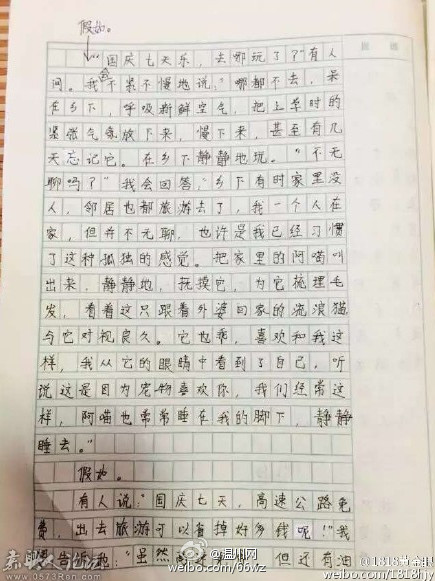 假如。
“国庆七天乐，去哪玩了？”有人
问。我会不紧不慢地说，“哪都不去，呆
在乡下，呼吸新鲜空气，把上学时的
紧张气氛放下来，慢下来，甚至有几
天忘记它。在乡下静静地玩。”“不无
聊吗？”我会回答，“乡下有时家里没
人，邻居也都旅游去了，我一个人在
家，但并不无聊，也许是我已经习惯
了这种孤独的感觉。把家里的阿喵叫
出来，静静地，抚摸它，为它梳理毛
发，看着这只跟着外婆回家的流浪猫
与它对视良久。它也乖，喜欢和我这
样，我从它的眼睛中看到了自己。听
说这是因为宠物喜欢你，我们经常这
样，阿喵也常常睡在我的脚下，静静
睡去。”
假如。
有人说：“国庆七天，高速公路免
费，出去旅游可以省掉好多钱呢！”我
“虽然 但还有油
素映人论坛
www.0573Ren.com
@温州网
weibo.com/66wz
@1818黄金眼
weibo.com/1818hjy